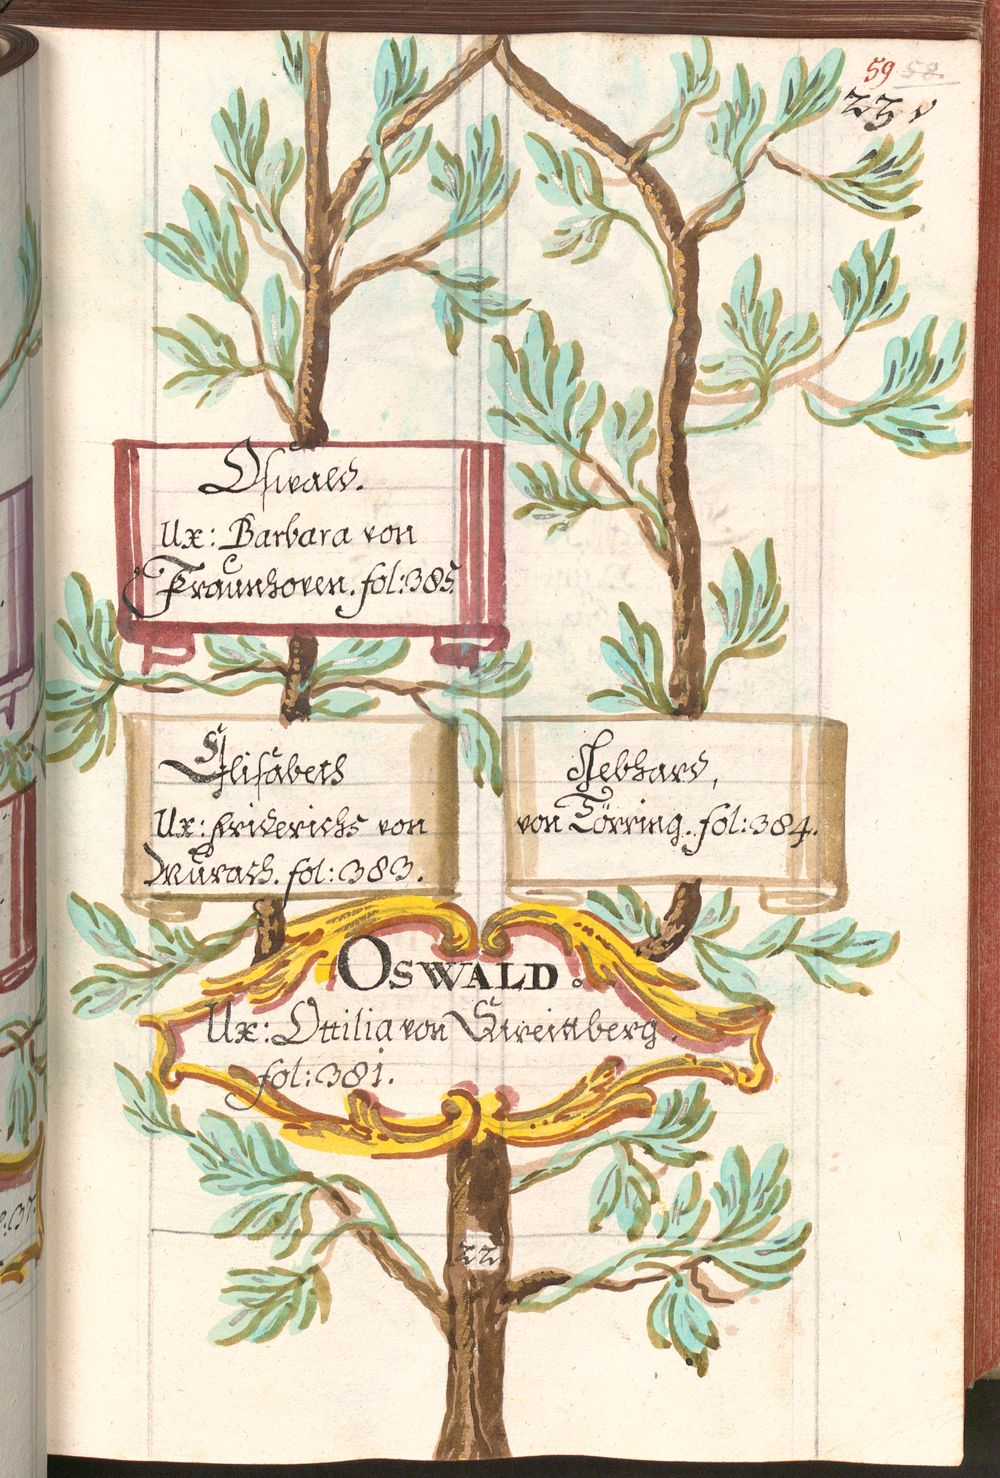 59 58.
23
Oswald.
Ux: Barbara von
Fraunhoven. fol: 385.
Elisabeth
Ux: Friderichs von
Murach. fol: 383.
Gebhard,
von Törring. fol: 384.
OSWALD.
Ux: Ottilia von
fol: 381.
22